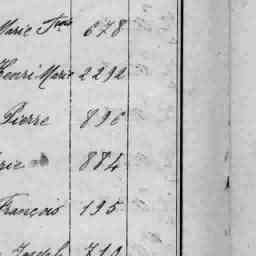 Marie Fçois 678
Henri Marie 2292
Pierre 896
rie 884
François 195
Joseph 719